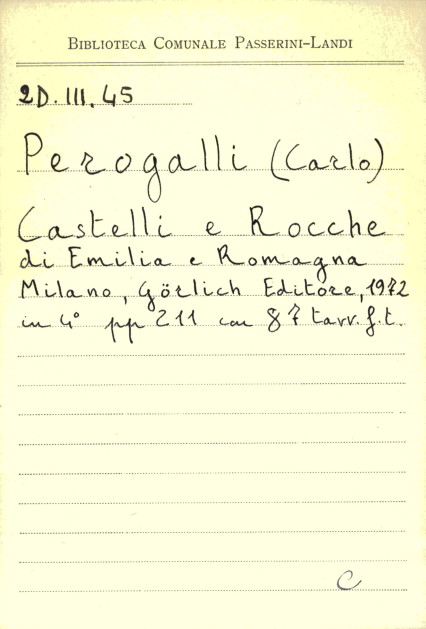 BIBLIOTECA COMUNALE PASSERINI-LANDI
2D.III.45
Perogalli (Carlo)
Castelli e Rocche
di Emilia e Romagna
Milano, Görlich Editore, 1972
in 4° pp 211 con 87 tavv. f.t.
C